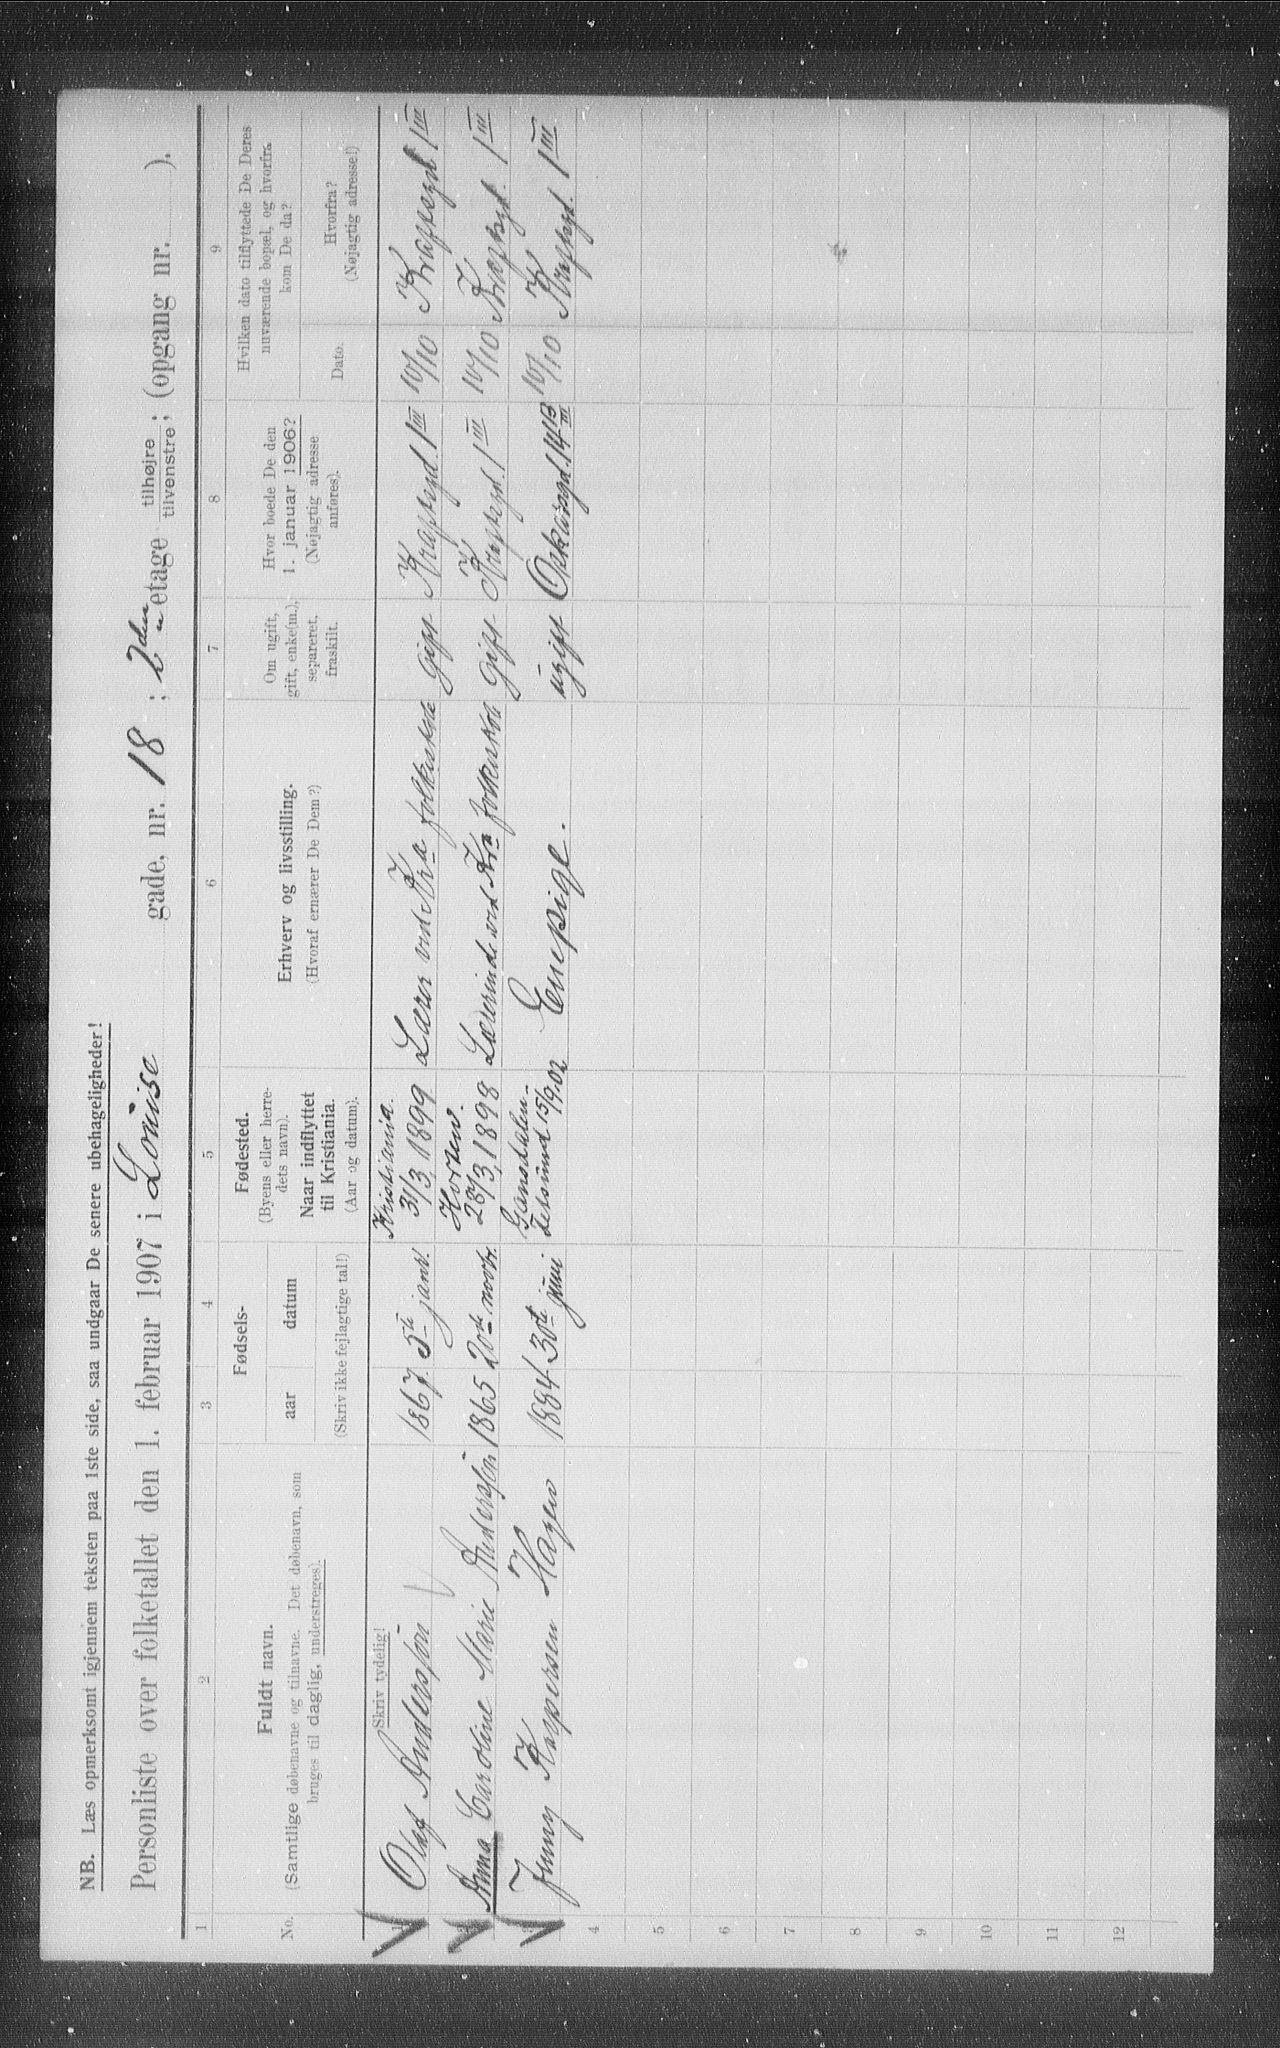 NB. Læs opmerksomt igjennem teksten paa 1ste side, saa undgaar De senere ubehageligheder!
Personliste over folketallet den 1. februar 1907 i Louise gade, nr. 18 ; 2den etage tilhøjre tilvenstre ; (opgang nr. ).
1 2 3 4 5 6 7 8 9
No.
Fuldt navn.
(Samtlige døbenavne og tilnavne. Det døbenavn, som
bruges til daglig, understreges).
Fødsels-
aar datum
(Skriv ikke fejlagtige tal!)
Fødested.
(Byens eller herre-
dets navn).
Naar indflyttet
til Kristiania.
(Aar og datum).
Erhverv og livsstilling.
(Hvoraf ernærer De Dem?)
Om ugift,
gift, enke(m.),
separeret,
fraskilt.
Hvor boede De den
1. januar 1906?
(Nøjagtig adresse
anføres).
Hvilken dato tilflyttede De Deres
nuværende bopæl, og hvorfra
kom De da?
Dato.
Hvorfra?
(Nøjagtig adresse!)
Skriv tydelig!
1 Olaf Anderssøn 1867 5te janr. Kristiania. 31/3 1899 Lærer ved Kra folkeskole Gift Kraftsgd. 1 III 10/10 Kraftsgd 1 III
2 Anna Caroline Marie Anderssøn 1865 20de novbr. Horten. 28/3, 1898 Lærerinde ved Kra folkeskole Gift Kraftsgd. 1 III 10/10 Kraftsgd. 1 III
3 Jenny Kaspersen Hagen 1884 30te juni Gansdalen. Fetsund 15/9 02 Enepige. ugift Oskarsgd. 14 B III 10/10 Kraftsgd. 1 III
4
5
6
7
8
9
10
11
12